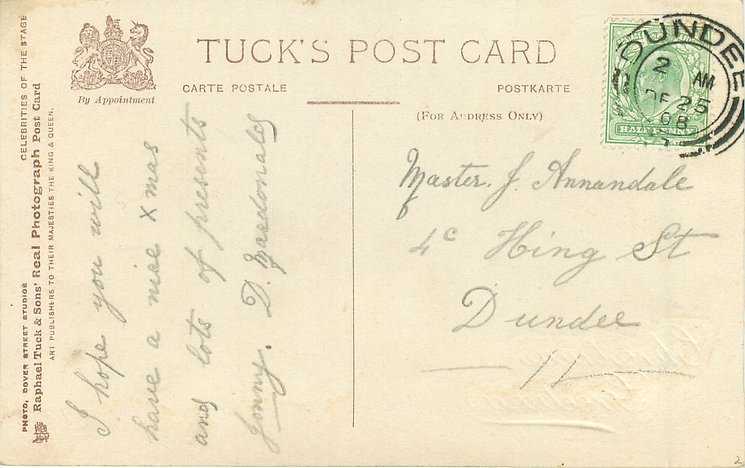 TUCK'S POST CARD
CARTE POSTALE
POSTKARTE
(FOR ADDRESS ONLY)
By Appointment
CELEBRITIES OF THE STAGE
Raphael Tuck & Sons' Real Photograph Post Card
ART PUBLISHERS TO THEIR MAJESTIES THE KING & QUEEN.
PHOTO, DOVER STREET STUDIOS
I hope you will
have a nice Xmas
and lots of presents
Jonny. D. Macdonald
Master. J. Annandale
4c Hing St
Dundee
DUNDEE
2 AM
DE 25
08
HALFPENNY